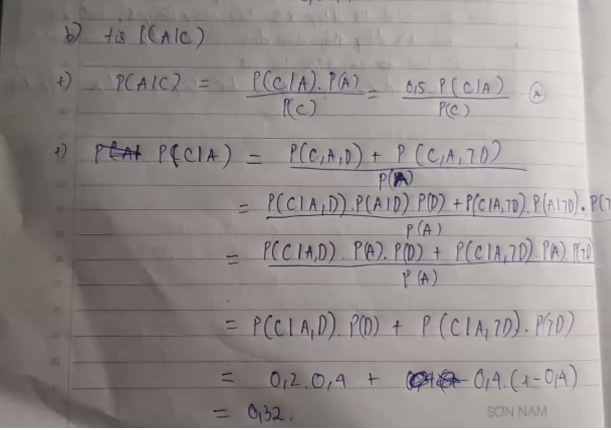 b) tìs P(A|C)
+) P(A|C) = P(C|A). P(A) / P(C) = 0,5. P(C|A) / P(C) (*)
+) P(C|A) = P(C,A,D) + P(C,A,7D) / P(A)
= P(C|A,D). P(A|D) P(D) + P(C|A,7D). P(A|7D). P(7 / P(A)
= P(C|A,D). P(A). P(D) + P(C|A,7D). P(A) P(7D / P(A)
= P(C|A,D). P(D) + P(C|A,7D). P(7D)
= 0,2. 0,4 + 0,4. (1-0,4)
= 0,32.
SƠN NAM